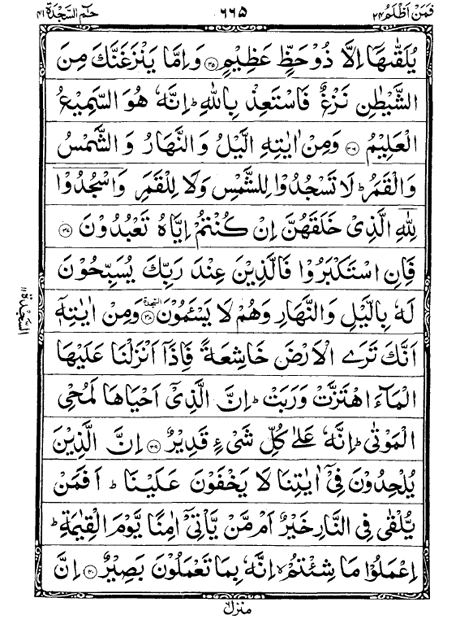 فَمَنْ اَظْلَمُ ٢٤ ٦٦٥ حٰمٓ السَّجْدَة ٤١
يُلَقّٰىهَاۤ اِلَّا ذُوْ حَظٍّ عَظِيْمٍ ﴿٣٥﴾ وَاِمَّا يَنْزَغَنَّكَ مِنَ
الشَّيْطٰنِ نَزْغٌ فَاسْتَعِذْ بِاللّٰهِ ؕ اِنَّهٗ هُوَ السَّمِيْعُ
الْعَلِيْمُ ﴿٣٦﴾ وَمِنْ اٰيٰتِهِ الَّيْلُ وَالنَّهَارُ وَالشَّمْسُ
وَالْقَمَرُ ؕ لَا تَسْجُدُوْا لِلشَّمْسِ وَلَا لِلْقَمَرِ وَاسْجُدُوْا
لِلّٰهِ الَّذِيْ خَلَقَهُنَّ اِنْ كُنْتُمْ اِيَّاهُ تَعْبُدُوْنَ ﴿٣٧﴾
فَاِنِ اسْتَكْبَرُوْا فَالَّذِيْنَ عِنْدَ رَبِّكَ يُسَبِّحُوْنَ
لَهٗ بِالَّيْلِ وَالنَّهَارِ وَهُمْ لَا يَسْـَٔمُوْنَ ﴿٣٨﴾ السجدة وَمِنْ اٰيٰتِهٖۤ
اَنَّكَ تَرَى الْاَرْضَ خَاشِعَةً فَاِذَاۤ اَنْزَلْنَا عَلَيْهَا
الْمَآءَ اهْتَزَّتْ وَرَبَتْ ؕ اِنَّ الَّذِيْۤ اَحْيَاهَا لَمُحْيِ
الْمَوْتٰى ؕ اِنَّهٗ عَلٰى كُلِّ شَيْءٍ قَدِيْرٌ ﴿٣٩﴾ اِنَّ الَّذِيْنَ
يُلْحِدُوْنَ فِيْۤ اٰيٰتِنَا لَا يَخْفَوْنَ عَلَيْنَا ؕ اَفَمَنْ
يُّلْقٰى فِي النَّارِ خَيْرٌ اَمْ مَّنْ يَّاْتِيْۤ اٰمِنًا يَّوْمَ الْقِيٰمَةِ ؕ
اِعْمَلُوْا مَا شِئْتُمْ ۙ اِنَّهٗ بِمَا تَعْمَلُوْنَ بَصِيْرٌ ﴿٤٠﴾ اِنَّ
السَّجْدَة ١١
منزل ٦